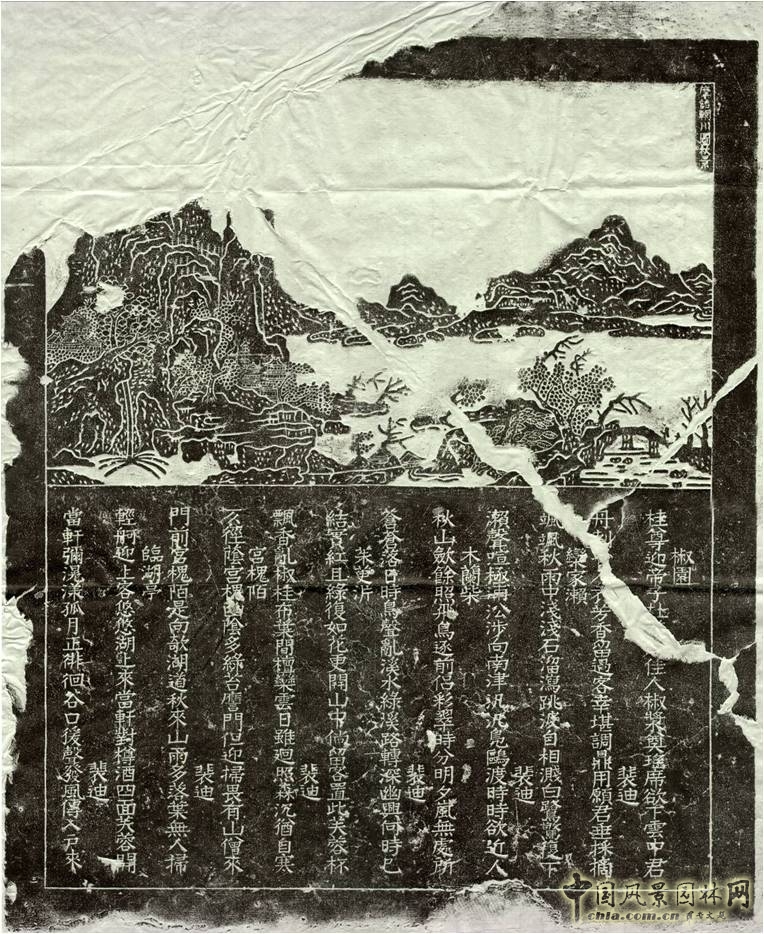 摩詰輞川圖秋景
椒園
桂尊迎帝子杜佳人椒漿奠瑤席欲下雲中君
裴迪
丹刺人衣芳香留過客幸堪調鼎用願君垂採摘
欒家瀨
颯颯秋雨中淺淺石溜瀉跳波自相濺白鷺驚復下
裴迪
瀨聲喧極浦沿涉向南津汎汎鳧鷗渡時時欲近人
木蘭柴
秋山斂餘照飛鳥逐前侶彩翠時分明夕嵐無處所
裴迪
蒼蒼落日時鳥聲亂溪水綠溪路轉深幽興何時已
茱萸沜
結實紅且綠復如花更開山中倘留客置此芙蓉杯
裴迪
飄香亂椒桂布葉間檀欒雲日雖迴照森沉猶自寒
宮槐陌
仄徑蔭宮槐幽陰多綠苔應門但迎掃畏有山僧來
裴迪
門前宮槐陌是向欹湖道秋來山雨多落葉無人掃
臨湖亭
輕舸迎上客悠悠湖上來當軒對樽酒四面芙蓉開
裴迪
當軒彌滉漾孤月正徘徊谷口猨聲發風傳入戶來
中国风景园林网
chla.com.cn